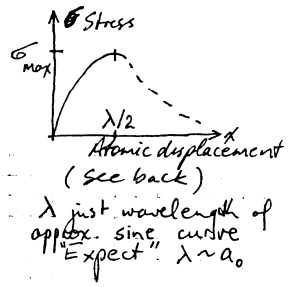 σ Stress
σ max
λ/2
x
Atomic displacement
(see back)
λ just wavelength of
approx. sine curve
"Expect" λ ~ a₀